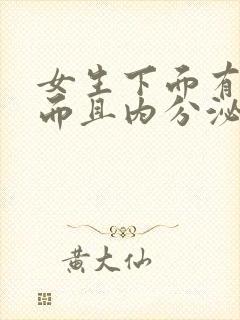 女生下而有
而且内分泌
黄大仙